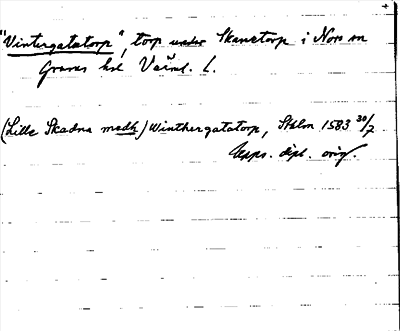 "Vintergatatorp", torp under Skanetorp i Nors sn
Grums hd Värml. l.
(Lille Skadna medh) Winthergatatorp, Sthlm 1583 30/7
Upps. dipl. orig.